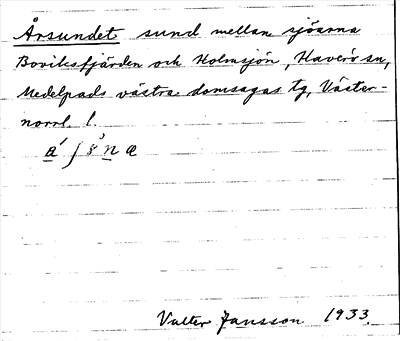 Årsundet sund mellan sjöarna
Boviksfjärden och Holmsjön, Haverö sn,
Medelpads västra domsagas tg, Väster-
norrl. l.
Valter Jansson 1933.